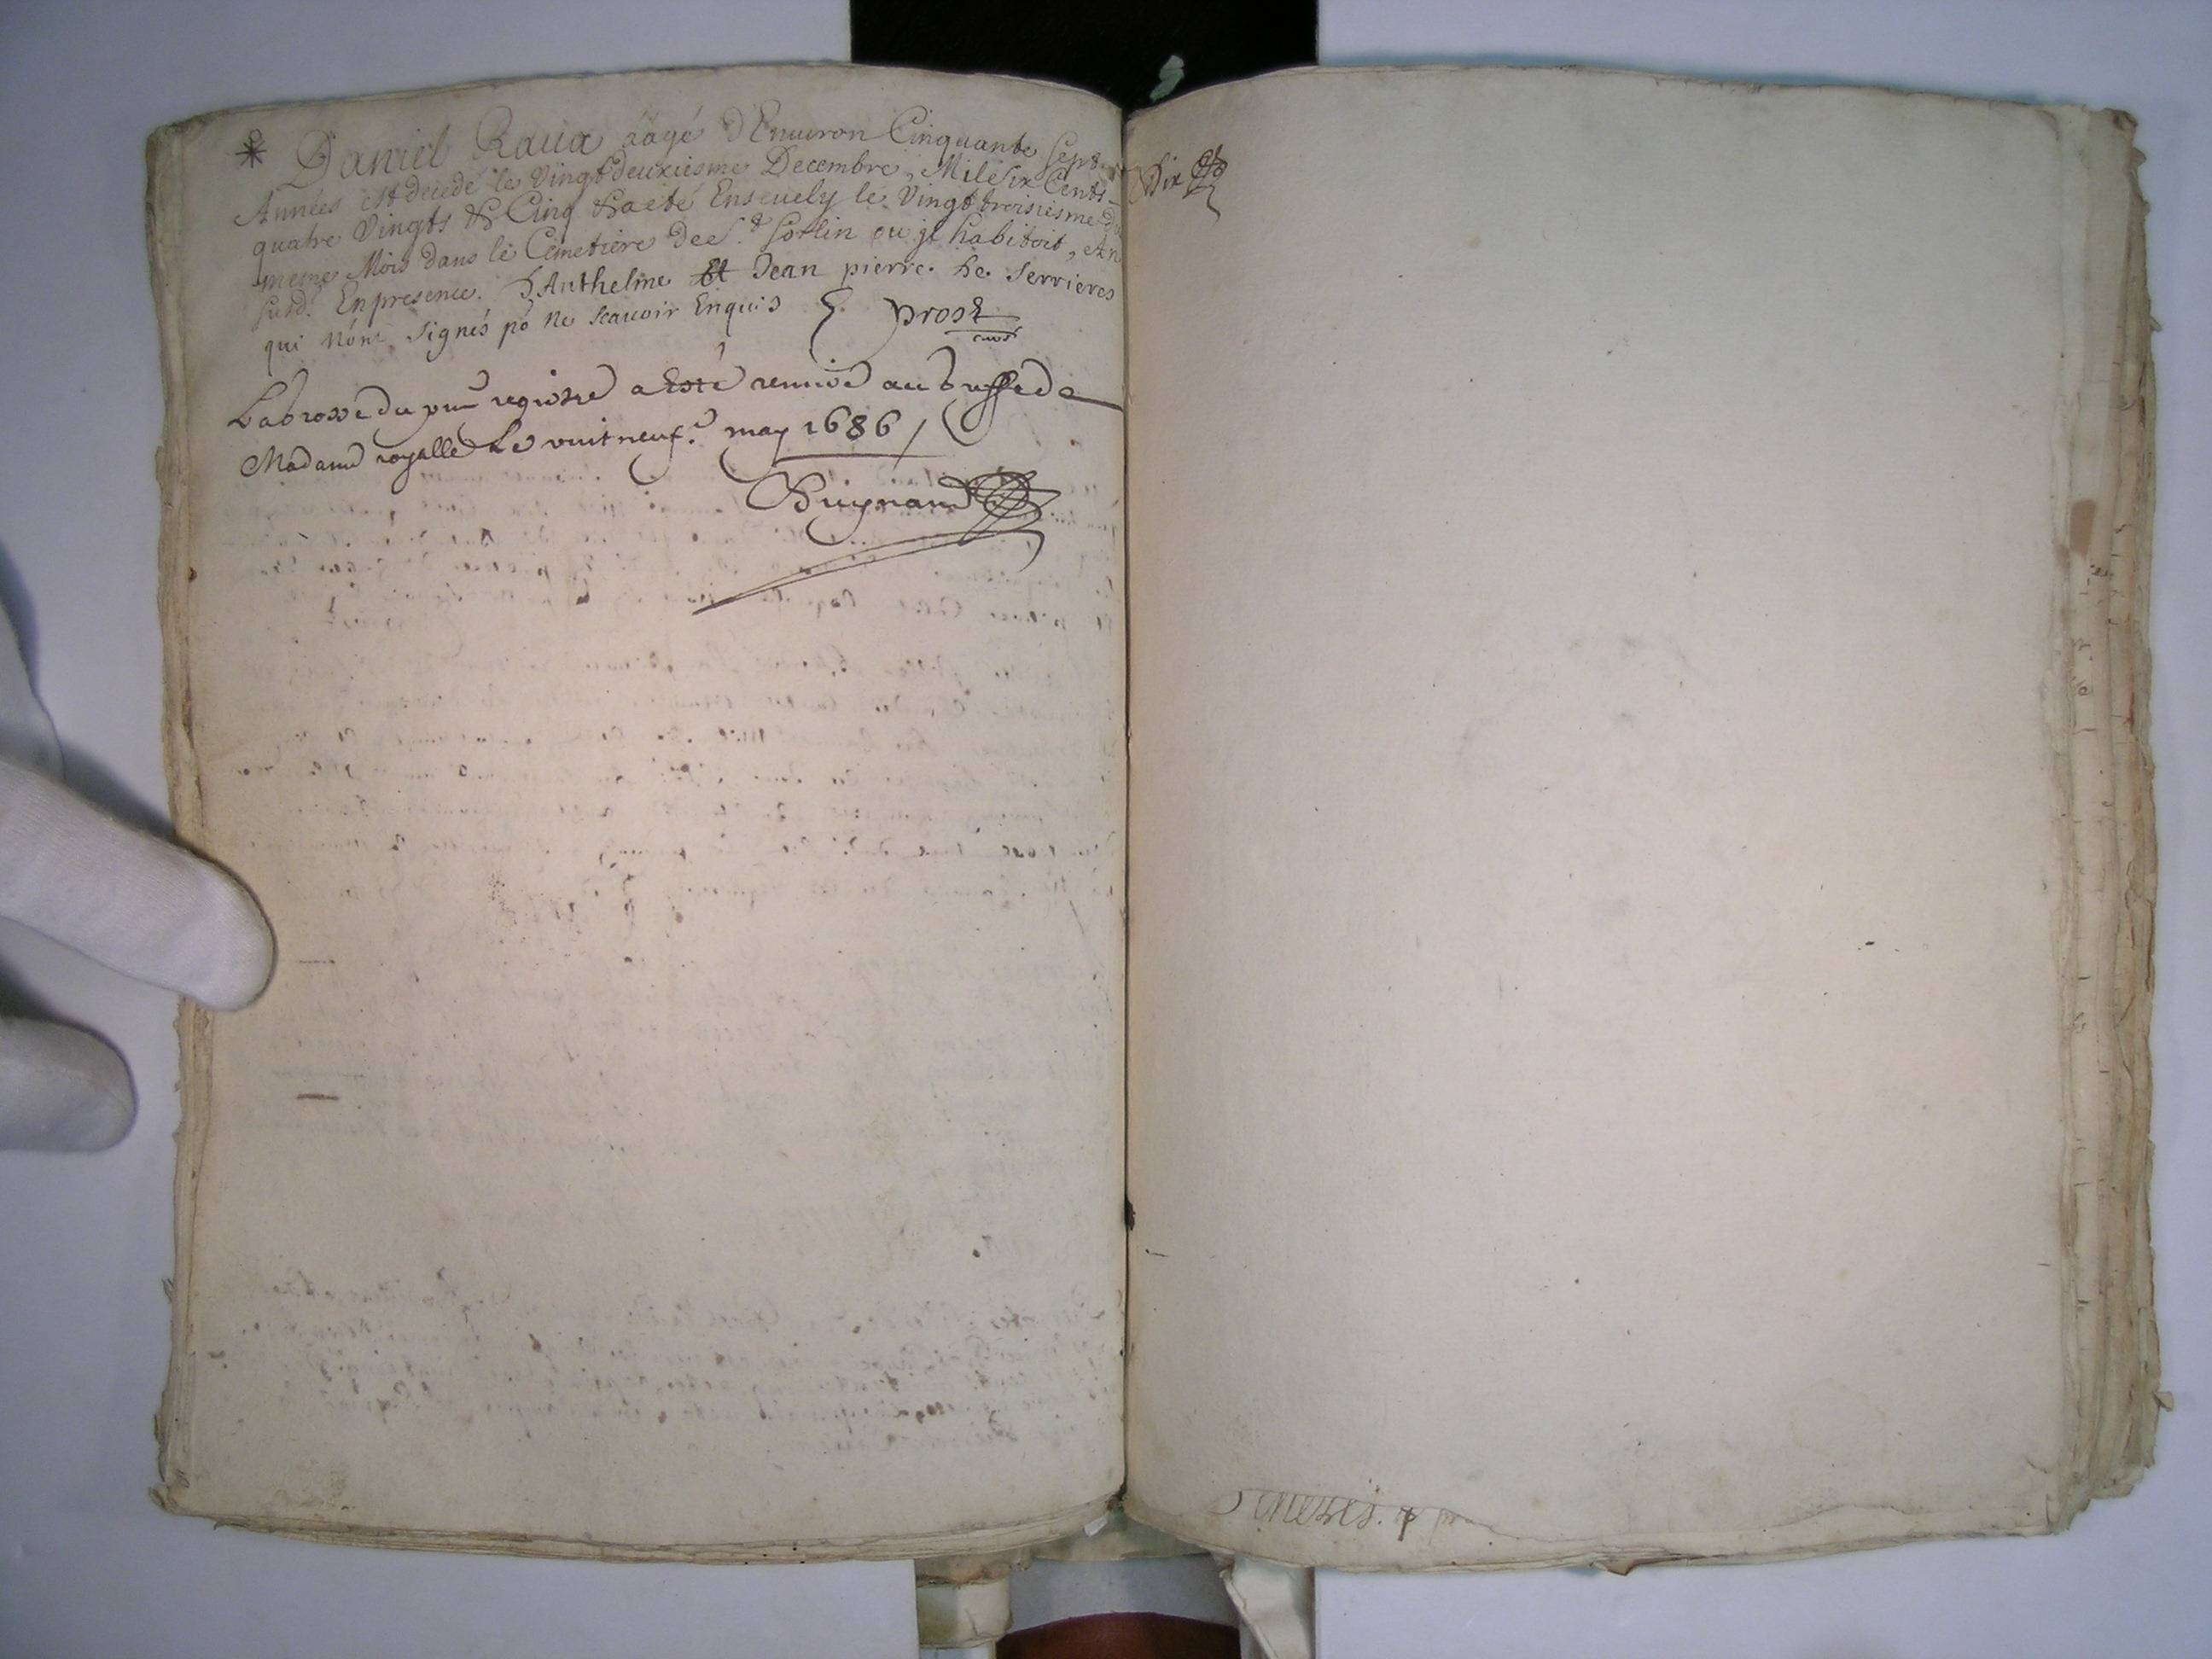 Daniel Raua aagé d'Enuiron Cinquante Sept
Années est decedé le Vingt deuxiesme Decembre, Mil Six Cents
quatre Vingts & Cinq & a eté Enseuely le Vingt troisiesme du
meme Mois dans le Cemetiere de St Sorlin ou jl habitoit, An
susd. En presence. d'Anthelme Et Jean pierre. de. Serrieres
qui n'ont signés po ne scauoir Enquis E. prost
curé
La grosse du pnt registre a Esté remise au greffe de
Madame royalle Le vint neuf.e may 1686
Buynand
Dix